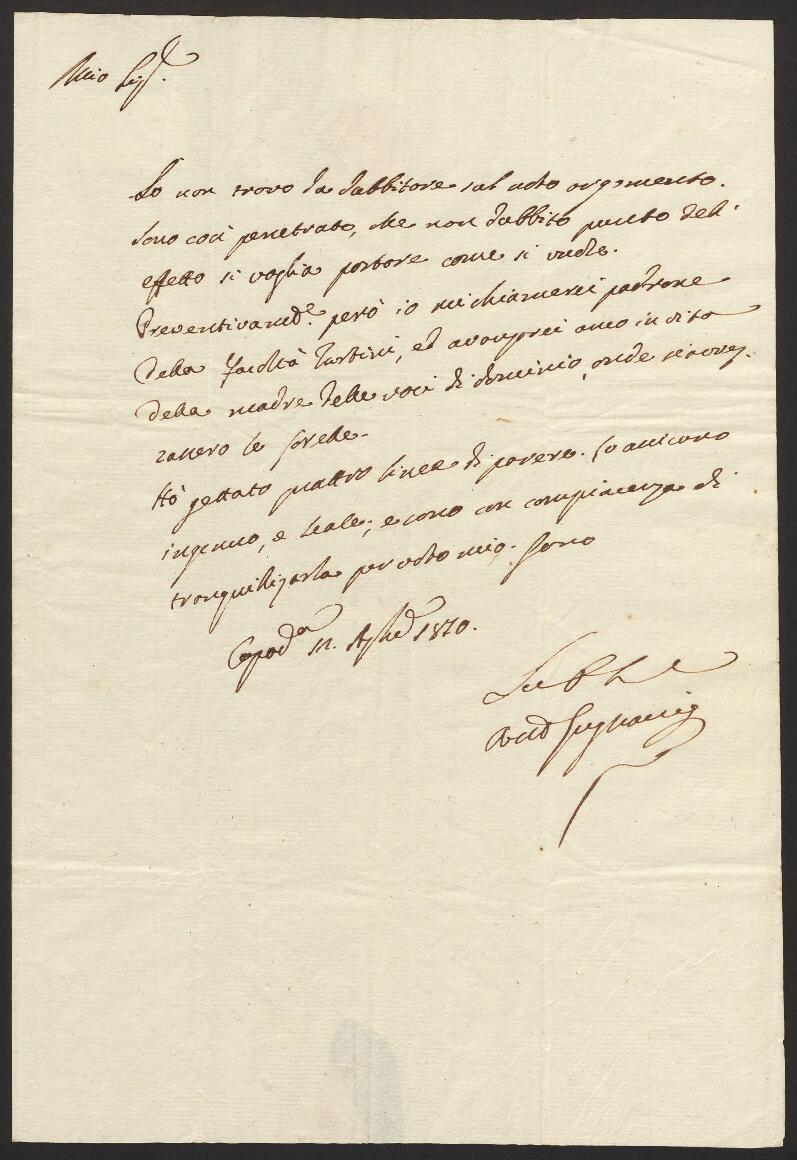 Mio Sig.r
Io non trovo da dubbitare sul noto argomento.
Sono così penetrato, che non dubbito punto dell'
effetto si voglia portare come si vuole.
Preventivamd.e però io mi chiamerei padrone
della facoltà Turbini, ed avanzerei anco in vita
della madre delle voci di dominio, onde
zassero le sorelle.
Hò gettato quattro linee di parere. Io amicono
ingenuo, e leale; e sono con compiacenza di
tranquillizarla per voto mio. Sono
Capod.a 11. 1810.